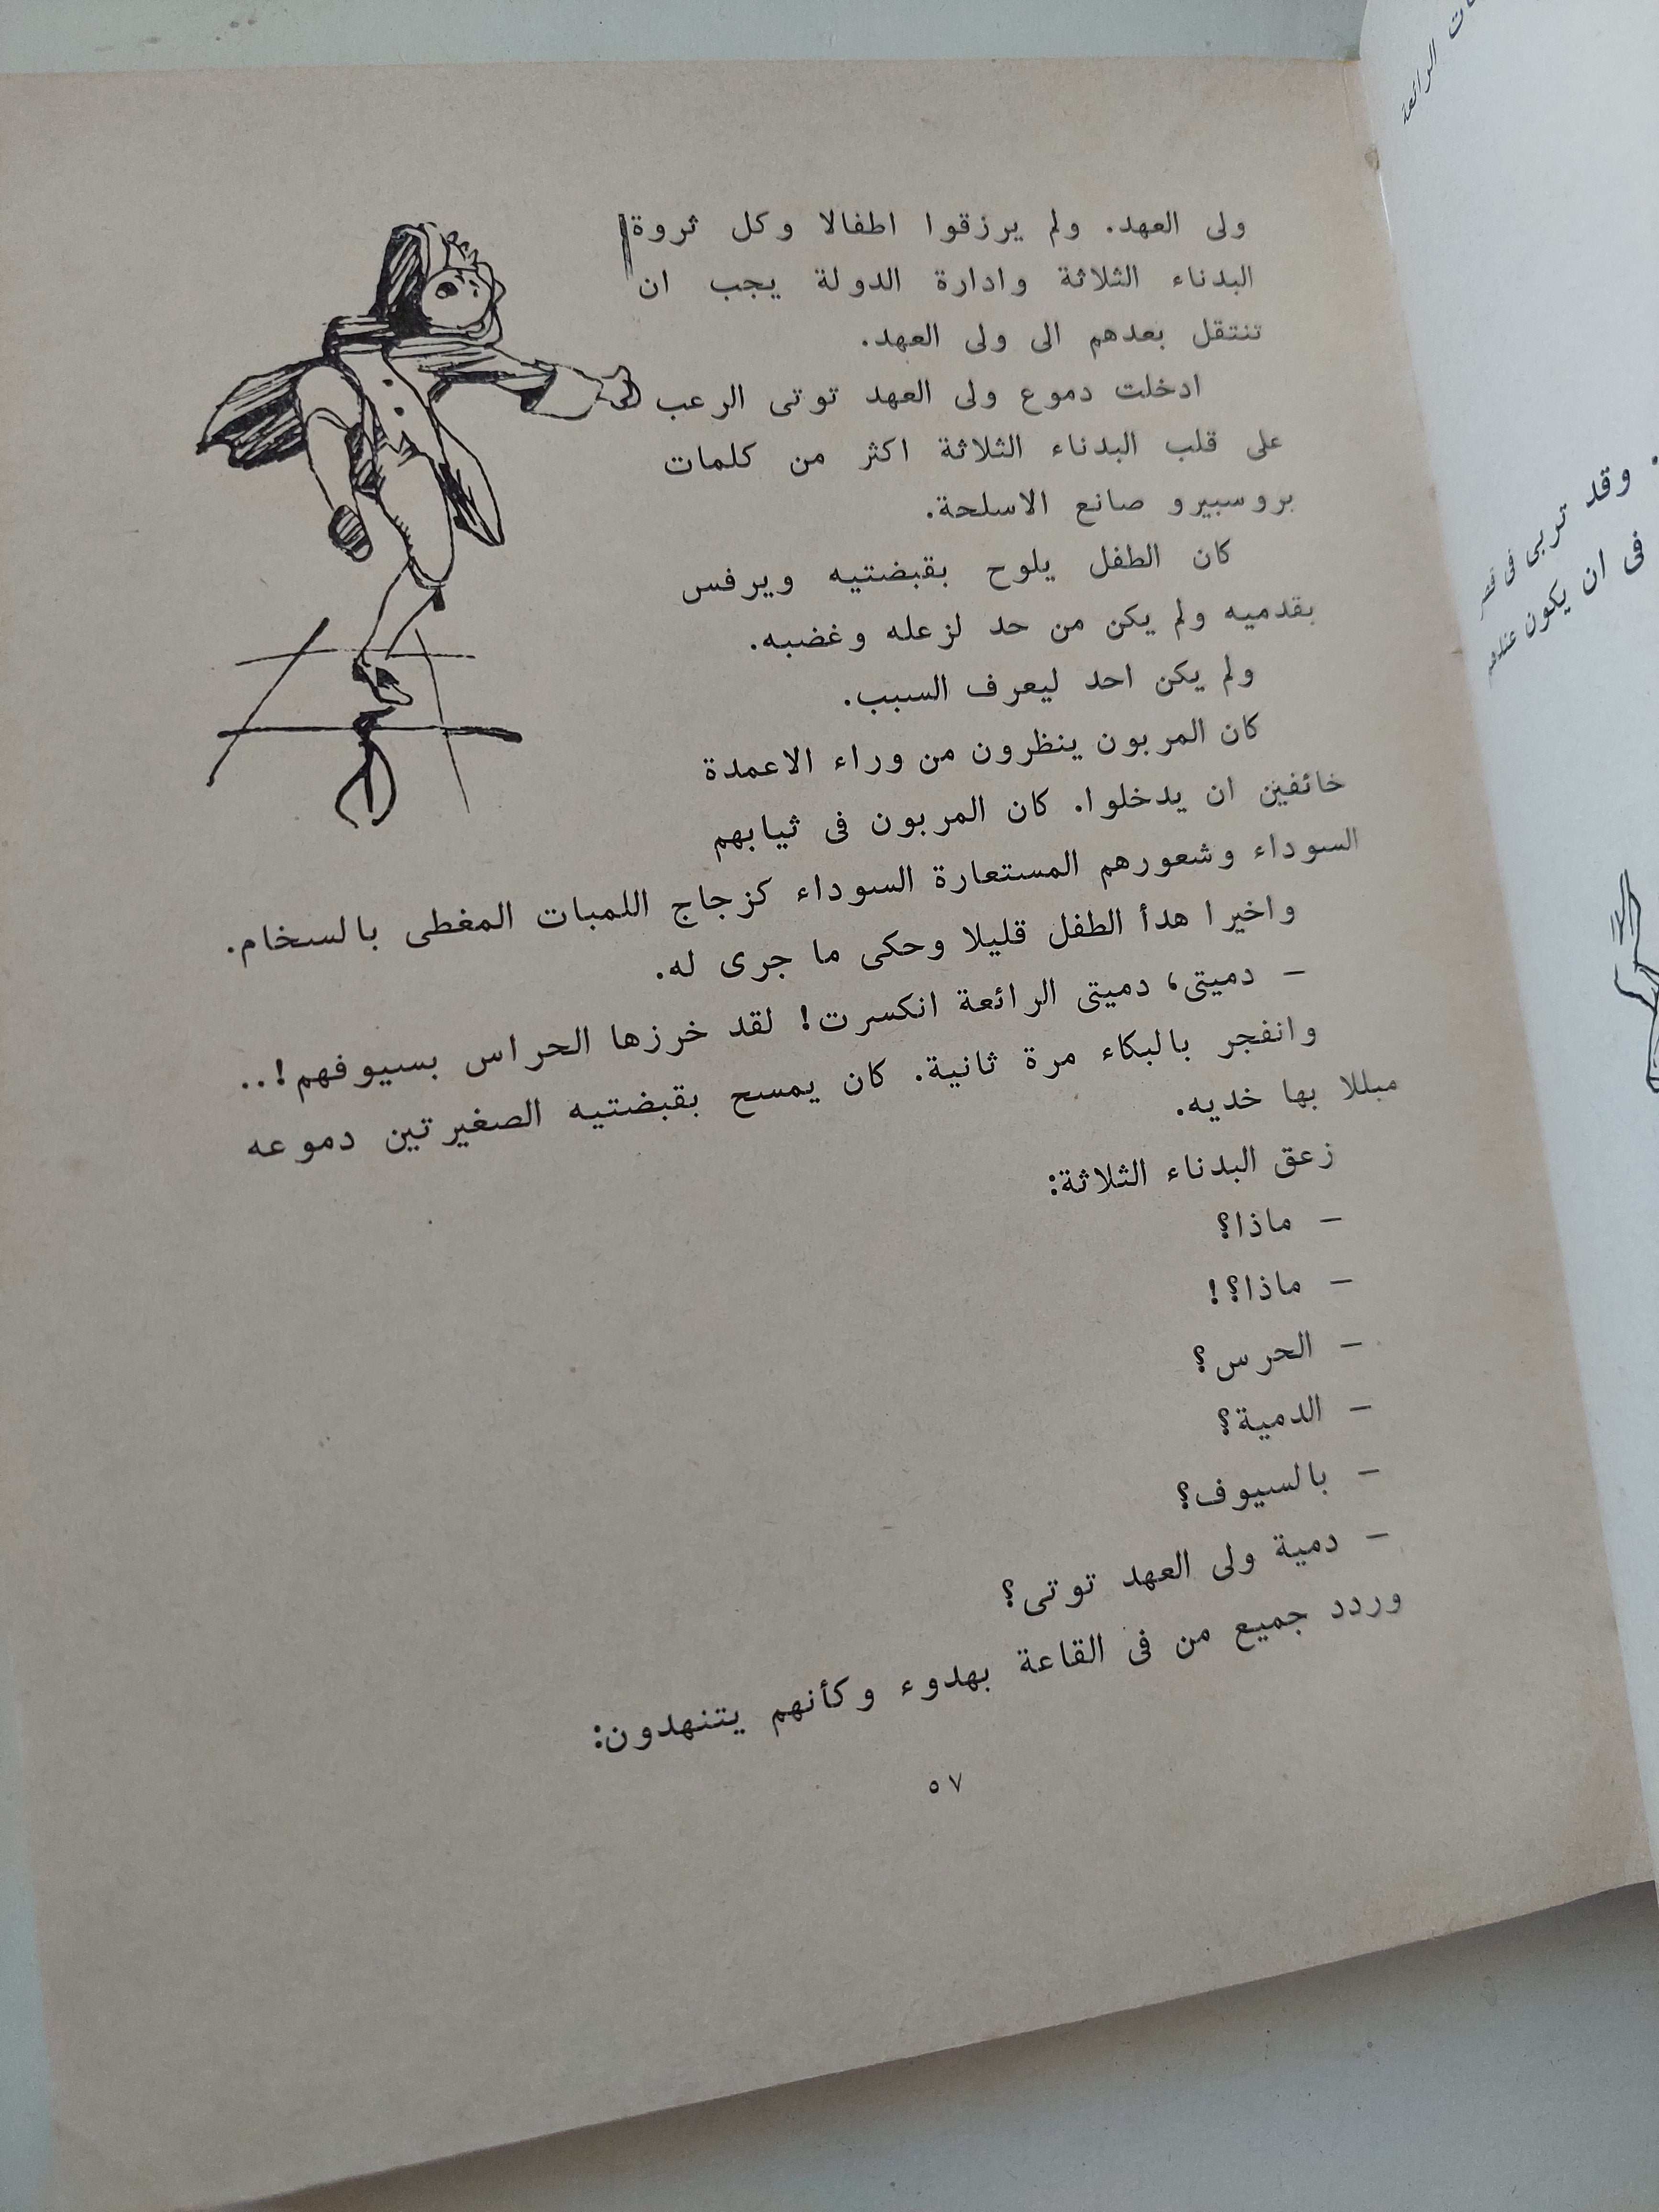 ولى العهد. ولم يرزقوا اطفالا وكل ثروة
البدناء الثلاثة وادارة الدولة يجب ان
تنتقل بعدهم الى ولى العهد.
ادخلت دموع ولى العهد توتى الرعب
على قلب البدناء الثلاثة اكثر من كلمات
بروسبيرو صانع الاسلحة.
كان الطفل يلوح بقبضتيه ويرفس
بقدميه ولم يكن من حد لزعله وغضبه.
ولم يكن احد ليعرف السبب.
كان المربون ينظرون من وراء الاعمدة
خائفين ان يدخلوا. كان المربون فى ثيابهم
السوداء وشعورهم المستعارة السوداء كزجاج اللمبات المغطى بالسخام.
واخيرا هدأ الطفل قليلا وحكى ما جرى له.
– دميتى، دميتى الرائعة انكسرت! لقد خرزها الحراس بسيوفهم!..
وانفجر بالبكاء مرة ثانية. كان يمسح بقبضتيه الصغيرتين دموعه
مبللا بها خديه.
زعق البدناء الثلاثة:
– ماذا؟
– ماذا؟!
– الحرس؟
– الدمية؟
– بالسيوف؟
– دمية ولى العهد توتى؟
وردد جميع من فى القاعة بهدوء وكأنهم يتنهدون:
٥٧
الرائعة
وقد تربى فى
فى ان يكون